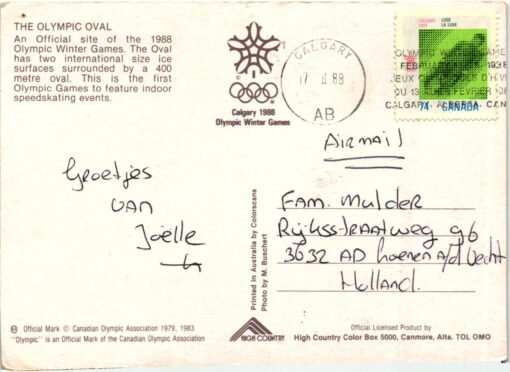 THE OLYMPIC OVAL
An Official site of the 1988
Olympic Winter Games. The Oval
has two international size ice
surfaces surrounded by a 400
metre oval. This is the first
Olympic Games to feature indoor
speedskating events.
Calgary 1988
Olympic Winter Games
CALGARY
17 II 88
AB
CALGARY LUGE
1988 LA LUGE
74 CANADA
OLYMPIC WINTER GAME
FEBRUARY 1988
JEUX OLYMPIQUES D'HIV
DU 13 AU 28 FEVRIER
CALGARY, ALBERTA, CAN
AIRMAIL
Groetjes
van
Joëlle
Fam. Mulder
Rijksstraatweg 96
3632 AD Loenen a/d Vecht
Holland.
Printed in Australia by Colorscans
Photo by M. Buschert
Official Mark © Canadian Olympic Association 1979, 1983
"Olympic" is an Official Mark of the Canadian Olympic Association
HIGH COUNTRY
Official Licensed Product by
High Country Color Box 5000, Canmore, Alta. TOL OMO